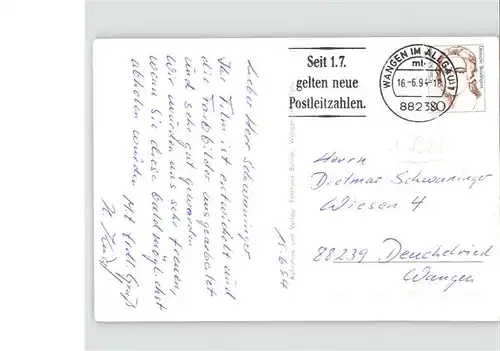 Seit 1.7.
gelten neue
Postleitzahlen.
WANGEN IM ALLGÄU 1
mt
16.-6.94-18
88238
Deutsche Bundespost
Lieber Herr Schwaninger
Der Film ist entwickelt und
die Farbbilder ausgearbeitet
und sehr gut geworden
Wir würden uns sehr freuen,
wenn Sie diese bald möglichst
abholen würden Mit frdl Gruß
15.6.94
Herrn
Dietmar Schwaninger
Wiesen 4
88239 Deuchelried
Wangen